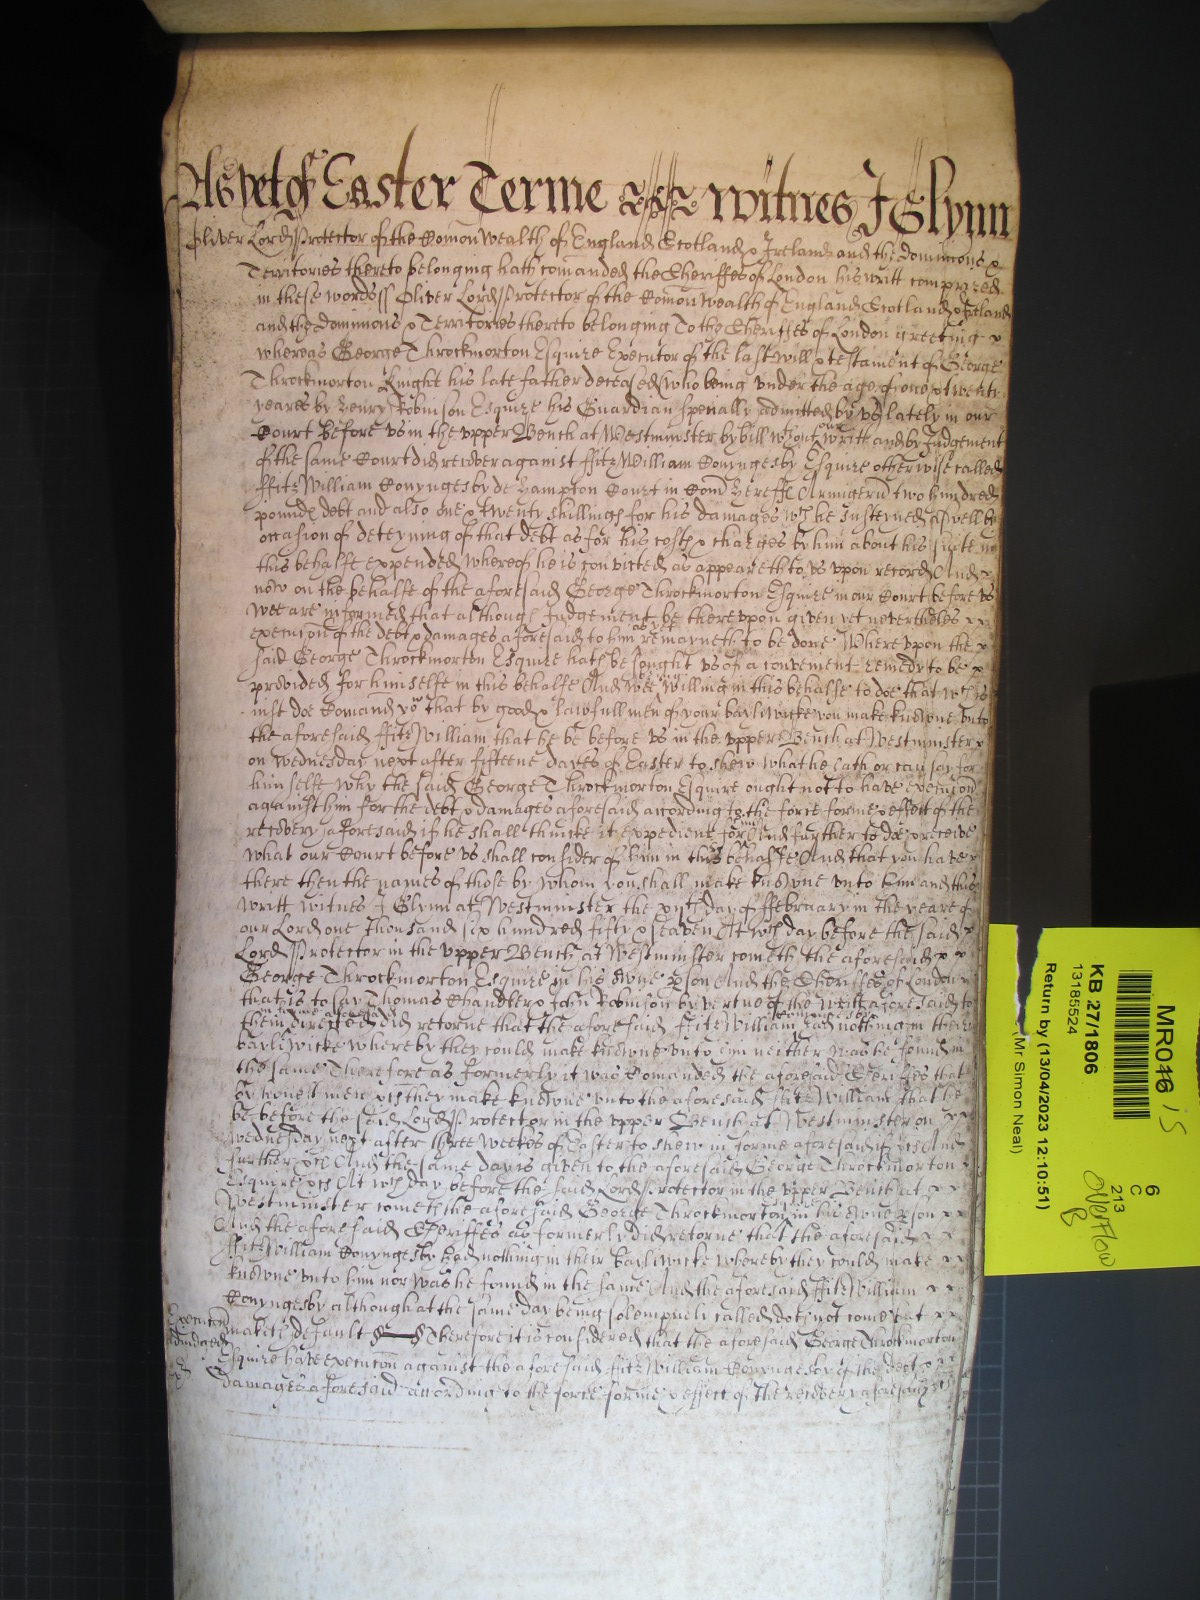 As yet of Easter Terme Witnes J Glynn
Oliver Lord Protector of the Comon Wealth of England Scotland & Ireland and the dominions &
Territories thereto belonging hath comanded the Sheriffes of London his writt comprized
in these words ss Oliver Lord Protector of the Comon Wealth of England Scotland & Ireland
and the Dominions & Territories thereto belonging To the Sheriffes of London greeting
whereas George Throckmorton Esquire Executor of the last will & testament of George
Throckmorton Knight his late father deceased (who being under the age of one & twenty
yeares by Henry Robinson Esquire his Guardian specially admitted by us lately in our
Court before us in the upper Bench at Westminster by bill wthout our writt and by Judgement
of the same Court did recover against ffitzWilliam Conyngesby Esquire otherwise called
ffitzWilliam Conyngesby de Hampton Court in Com Hereff Armigerum two hundred
pounds debt and also one & twenty shillings for his damages wch he susteyned aswell by
occasion of deteyning of that debt as for his costs & charges by him about his suite in
this behalfe expended whereof he is convicted as appeareth to us upon record And
now on the behalfe of the aforesaid George Throckmorton Esquire in our Court before us
wee are informed that although Judgement be thereupon given yet nevertheles
execucon of the debt & damages aforesaid to him as yet remayneth to be done Whereupon the
said George Throckmorton Esquire hath besought us of a convenient remedy to be
provided for himselfe in this behalfe And wee willing in this behalfe to doe that wch is
iust doe Comand you that by good & lawfull men of your bayliwicke you make knowne unto
the aforesaid ffitzWilliam that he be before us in the upper Bench at Westminster
on Wednesday next after fifteene dayes of Easter to shew what he hath or can say for
himselfe why the said George Throckmorton Esquire ought not to have execucon
against him for the debt & damages aforesaid according to the force forme & effect of the
recovery aforesaid if he shall thincke it expedient for him And further to doe & receive
what our Court before us shall consider of him in this behalfe And that you have
there then the names of those by whom you shall make knowne unto him and this
writt witnes J Glynn at Westminster the xijth day of ffebruary in the yeare of
our Lord one thousand six hundred fifty & seaven At wch day before the said
Lord Protector in the upper Bench at Westminster cometh the aforesaid
George Throckmorton Esquire in his owne pson And the Sheriffes of London
that is to say Thomas Chandler & John Robinson by vertue of the writt aforesaid to
them in forme aforesaid directed did retorne that the aforesaid ffitzWilliam Conyngesby had nothing in their
bayliwicke whereby they could make knowne unto him neither was he found in
the same Therefore as formerly it was Comanded the aforesaid Sheriffes that
by honest men &c they make knowne unto the aforesaid ffitzWilliam that he
be before the said Lord Protector in the upper Bench at Westminster on
Wednesday next after three weekes of Easter to shew in forme aforesaid if &c And
further &c And the same day is given to the aforesaid George Throckmorton
Esquire &c At wch day before the said Lord Protector in the upper Bench at
Westminster cometh the aforesaid George Throckmorton in his owne pson
And the aforesaid Sheriffes as formerly did retorne that the aforesaid
ffitzWilliam Conyngesby had nothing in their bayliwicke whereby they could make
knowne unto him nor was he found in the same And the aforesaid ffitzWilliam
Conyngesby although at the same day being solempnely called doth not come but
maketh default Therefore it is considered that the aforesaid George Throckmorton
Esquire have execucon against the aforesaid ffitzWilliam Conyngesby of the debt &
damages aforesaid according to the force forme & effect of the recovery aforesaid &c
Execucon
adiudged
MR046
KB 27/1806
13185524
Return by (13/04/2023 12:10:51)
(Mr Simon Neal)
6
C
213
overflow
B
15